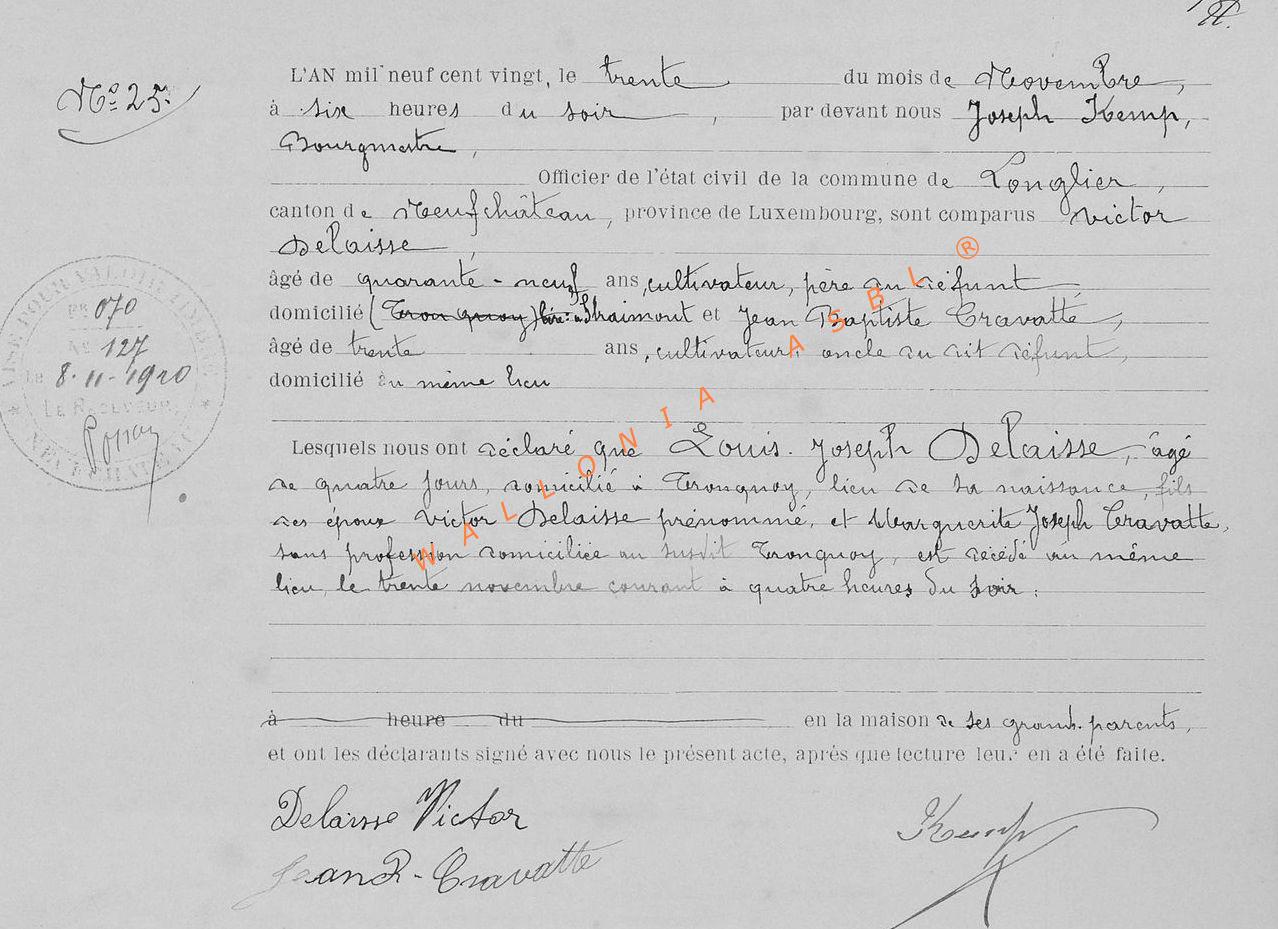 Nº 25.
L'AN mil neuf cent vingt, le trente du mois de Novembre,
à six heures du soir, par devant nous Joseph Kemp,
Bourgmestre,
Officier de l'état civil de la commune de Longlier,
canton de Neufchâteau, province de Luxembourg, sont comparus Victor
Delaisse,
âgé de quarante-neuf ans, cultivateur, père du défunt
domicilié (Tronquoy) lire: à Straimont et Jean Baptiste Cravatte,
âgé de trente ans, cultivateur, oncle du dit défunt,
domicilié au même lieu
Lesquels nous ont déclaré que Louis Joseph Delaisse, âgé
de quatre jours, domicilié à Tronquoy, lieu de sa naissance, fils
des époux Victor Delaisse prénommé, et Marguerite Joseph Cravatte,
sans profession domiciliée au susdit Tronquoy, est décédé au même
lieu, le trente novembre courant à quatre heures du soir:
à heure du en la maison de ses grands-parents,
et ont les déclarants signé avec nous le présent acte, après que lecture leur en a été faite.
Delaisse Victor
Jean B. Cravatte
Kemp
VISÉ POUR VALOIR
070
Nº 127
Le 8-11-1920
LE RECEVEUR,
NEUFCHATEAU
WALLONIA ASBL ®